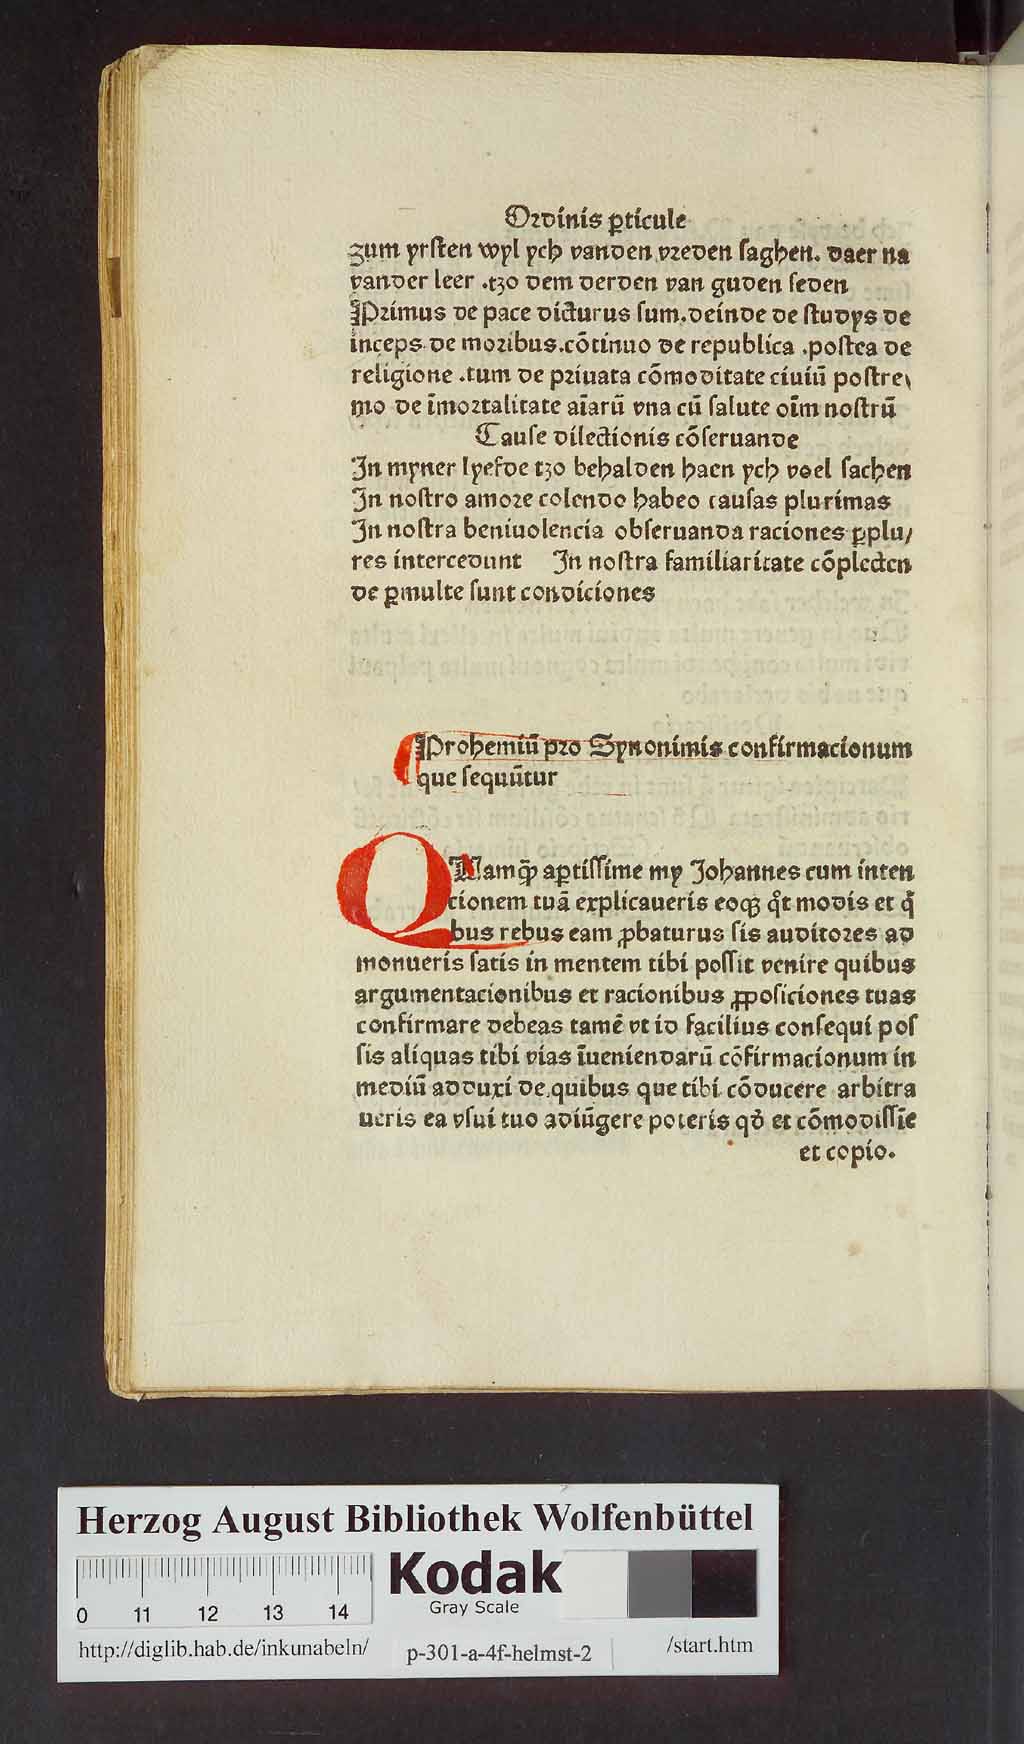 Ordinis ꝑticule
zum yrſten wyl ych vanden vreden ſaghen. daer na
vander leer .tzo dem derden van guden ſeden
Primus de pace dicturus ſum.deinde de ſtudys de
inceps.de moribus.cōtinuo de republica .poſtea de
religione .tum de priuata cōmoditate ciuiū poſtre⸗
mo de īmortalitate aīarū vna cū ſalute oīm noſtrū
Cauſe dilectionis cōſeruande
In myner lyefde tzo behalden haen ych veel ſachen
In noſtro amore colendo habeo cauſas plurimas
In noſtra beniuolencia obſeruanda raciones ꝑplu/
res intercedunt In noſtra familiaritate cōplecten
de ꝑmulte ſunt condiciones
Prohemiū pro Synonimis confirmacionum
que ſequūtur
QUamꝙ aptiſſime my Johannes cum inten
cionem tuā explicaueris eoqꝫ qͥt modis et qͥ
bus rebus eam ꝓbaturus ſis auditores ad
monueris ſatis in mentem tibi poſſit venire quibus
argumentacionibus et racionibus ꝓpoſiciones tuas
confirmare debeas tamē vt id facilius conſequi poſ
ſis aliquas tibi vias īueniendarū cōfirmacionum in
mediū adduxi de quibus que tibi cōducere arbitra
ueris ea vſui tuo adiūgere poteris qđ et cōmodiſſīe
et copio.
Herzog August Bibliothek Wolfenbüttel
Kodak
Gray Scale
0 11 12 13 14
http://diglib.hab.de/inkunabeln/ p-301-a-4f-helmst-2 /start.htm